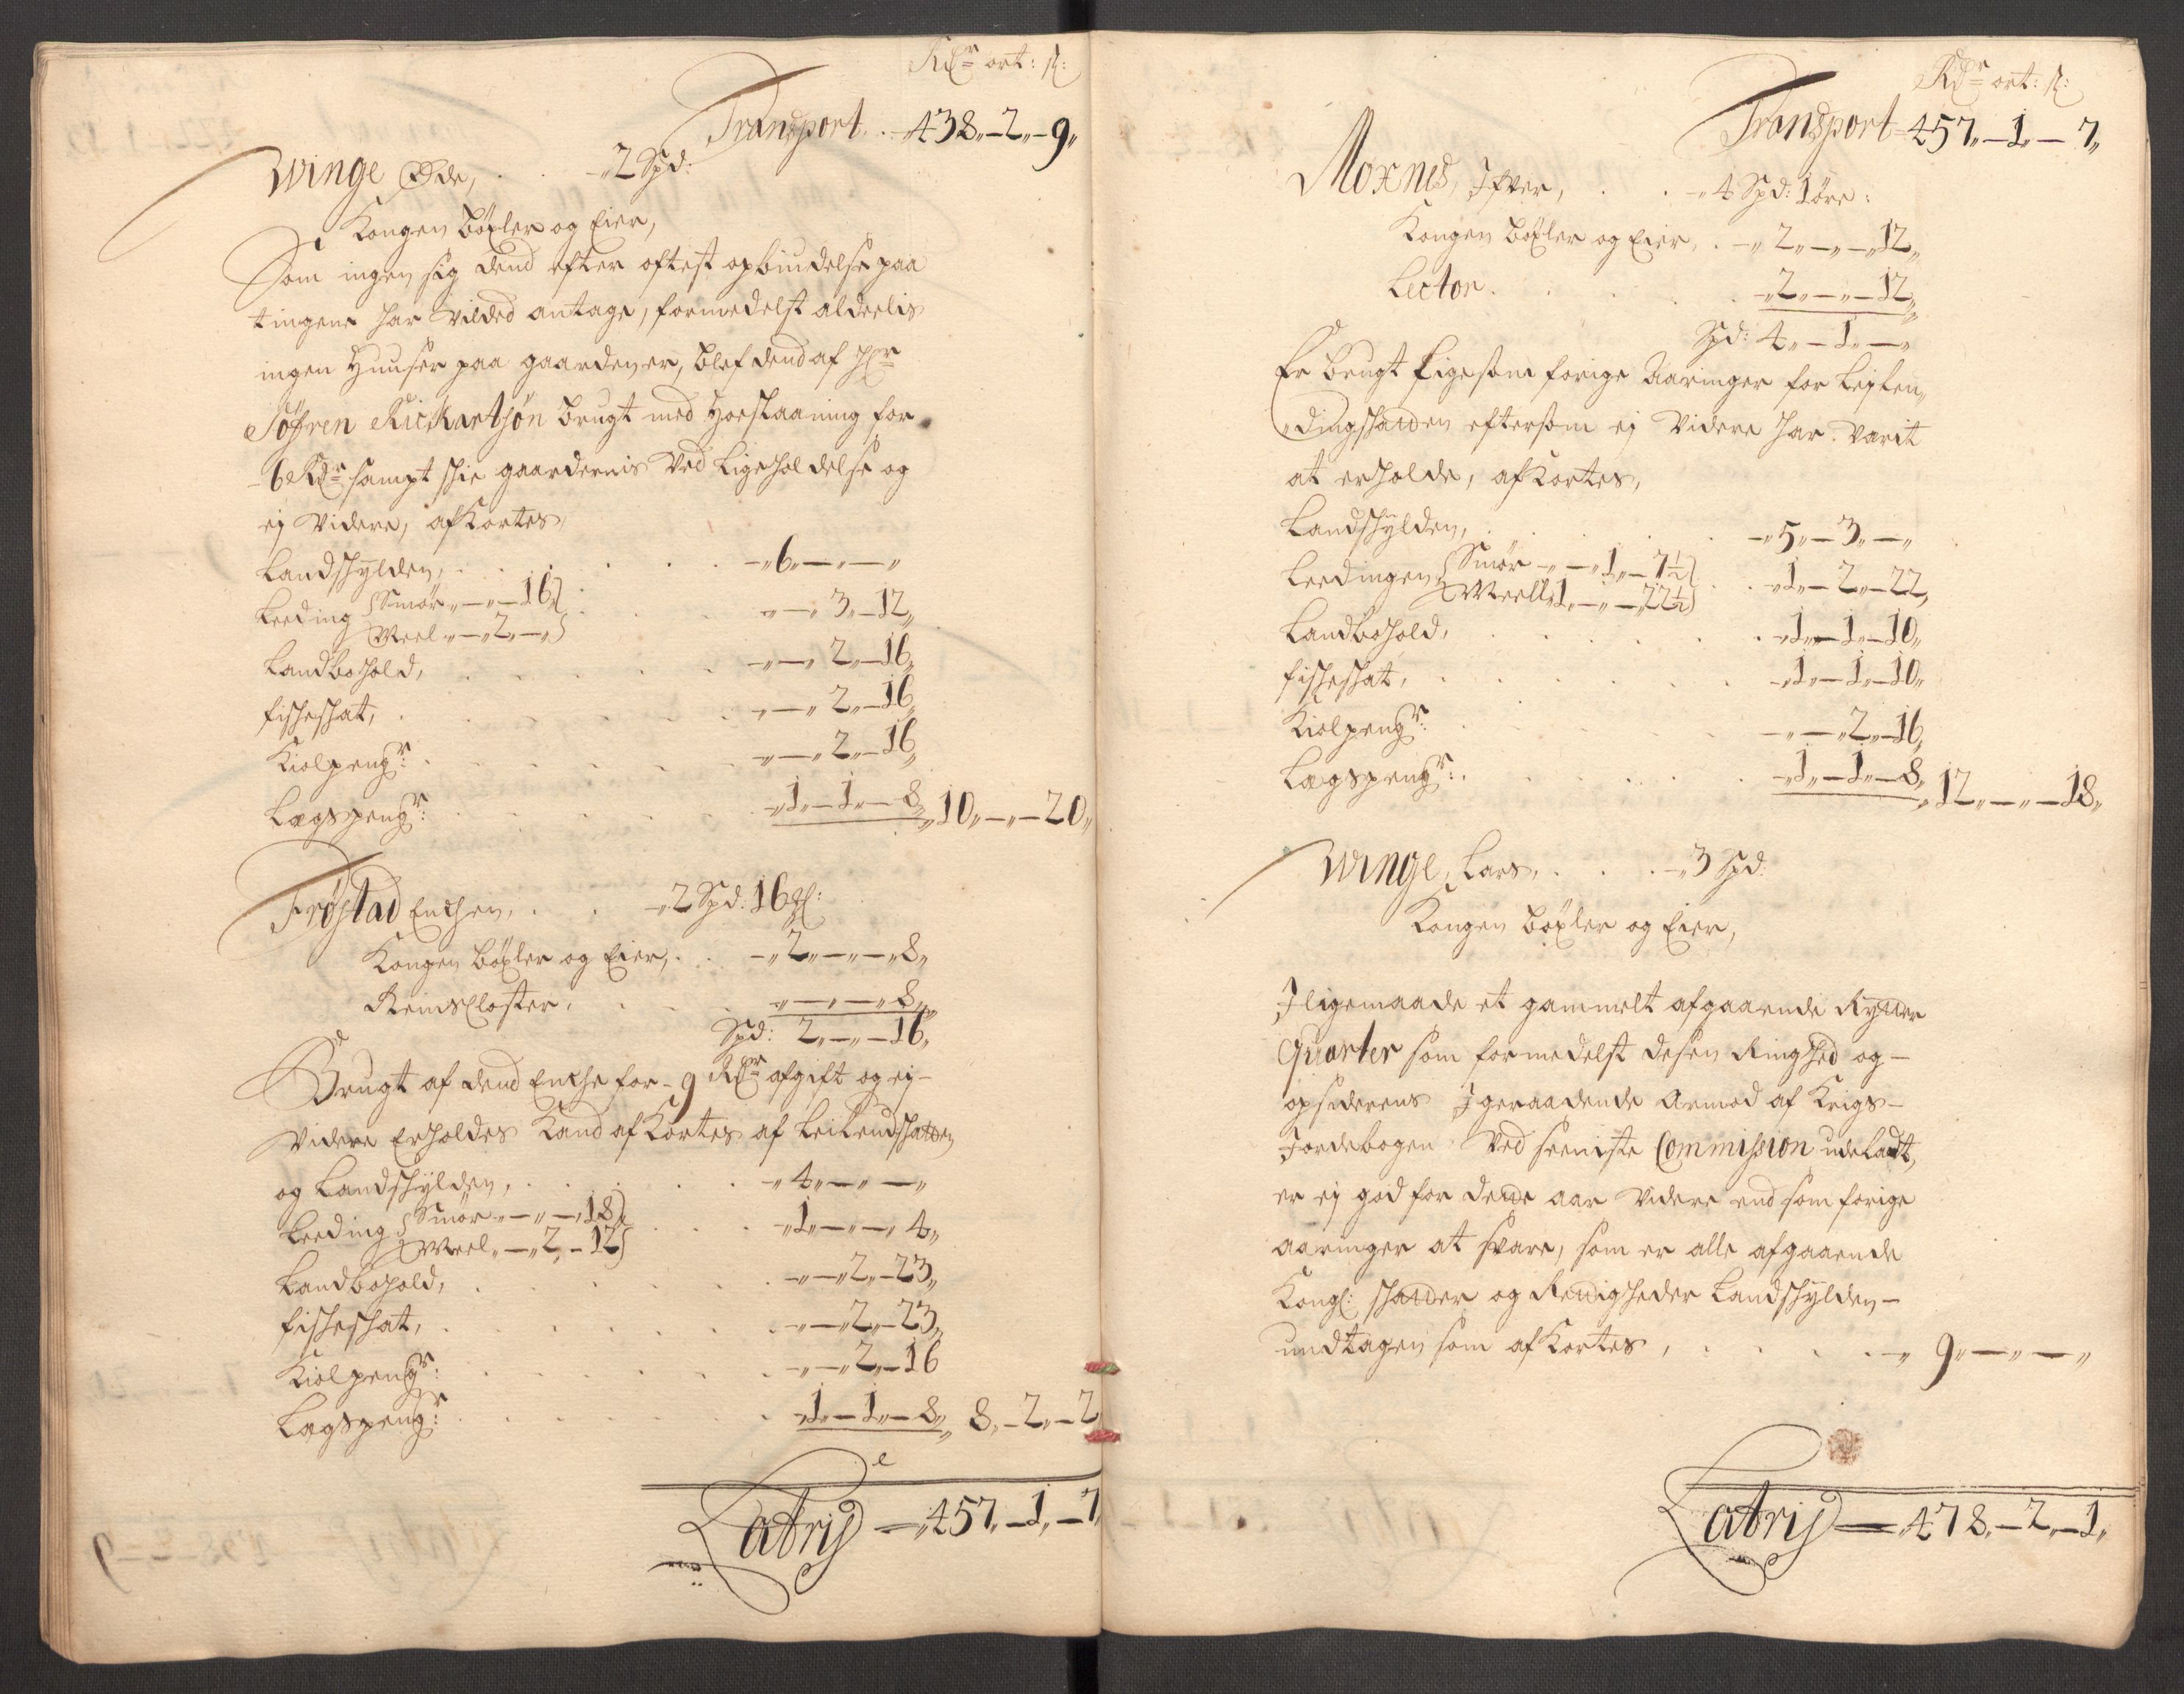 Rdr ort: s:
Transport . . 438„ – 2„ – 9„
Winge Øde, . . – „ 2 Spd:
Kongen böxler og Eier,
Som ingen sig dend efter oftest opbiudelse paa
tingene har vilded antage, formedelst alderlis
ingen Huuser paa gaarden er, blef dend af Hr
Söfren Rickartsön brugt med Hoeslaaning for
– 6 Rdr sampt schie gaardernis ved ligeholdelse og
ej videre, afkortes,
Landschylden, . . . – „ 6„ – „ – „
Leeding { Smör „ – „ – 16„ }
Meel „ – „ 2„ – „ } . . „ – „ 3„ – 12„
Landbohold, . . . „ – „ 2„ – 16„
fischeschat, . . . „ – „ 2„ – 16„
Kiolpengr: . . . „ – „ 2„ – 16„
Lægspengr: . . . – „ 1„ – 1„ – 8„ „ 10„ – „ – 20„
Fröstad Enchen, . . – „ 2 Spd: 16 ℔:
Kongen böxler og Eier, . . – „ 2„ – „ – „ 8„
Reinscloster. . . . „ – „ – „ 8„
Spd: 2„ – „ – 16„
Brugt af dend Enche for – 9 Rdr afgift og ej –
videre Erholdes kand afkortes af Leilendschatten
og Landschylden, . . . – „ 4„ – „ – „
Leeding { Smör „ – „ – „ 18 }
Meel „ – „ 2„ – 12 } . . – „ 1„ – „ – „ 4„
Landbohold, . . . „ – „ 2„ – 23„
fischeschat, . . . „ – „ 2„ – 23„
Kiolpengr: . . . „ – „ 2„ – 16
Lagspengr: . . . – „ 1„ – 1„ – 8„ 8„ – 2„ – 2
Latris – „ 457„ – 1„ – 7
Rdr ort: s:
Transport – 457„ – 1„ – 7„
Moxnes, Ifver, . . – „ 4 Spd: 1 öre:
Kongen böxler og Eier, . – „ 2„ – „ – „ 12„
Lector. . . . – „ 2„ – „ – 12„
Spd: 4„ – 1„ – „
Er brugt ligesom forige Aaringer for Leylen„
„dingschatten eftersom ej videre har varit
at erholde, afkortes,
Landschylden, . . . – „ 5„ – 3„ – „
Leedingen { Smör „ – „ 1„ – 7½ }
Meell „ 1„ – „ – „ 22½ } . . – „ 1„ – 2„ – 22„
Landbohold, . . . – „ 1„ – 1„ – 10„
fischeschat, . . . – „ 1„ – 1„ – 10„
Kiolpengr: . . . „ – „ 2„ – 16„
Lagspengr: . . . – „ 1„ – 1„ – 8„ „ 12„ – „ – 18„
Winge, Lars, . . . – „ 3 Spd:
Kongen böxler og Eier,
Iligemaade et gammelt afgaaende Rytter
Quarter som formedelst desen Ringhed og –
opsiderens Igeraadende Armod af Krigs –
Jordebogen ved seeniste Commission udeladt,
er ej god for dette aar videre end som forige
aaringer at svare, som er alle afgaaende
Kongl: schatter og Rettigheder Landschylden –
undtagen som afkortes, . . . . – „ 9„ – „ – „
Latris – 478„ – 2„ – 1„